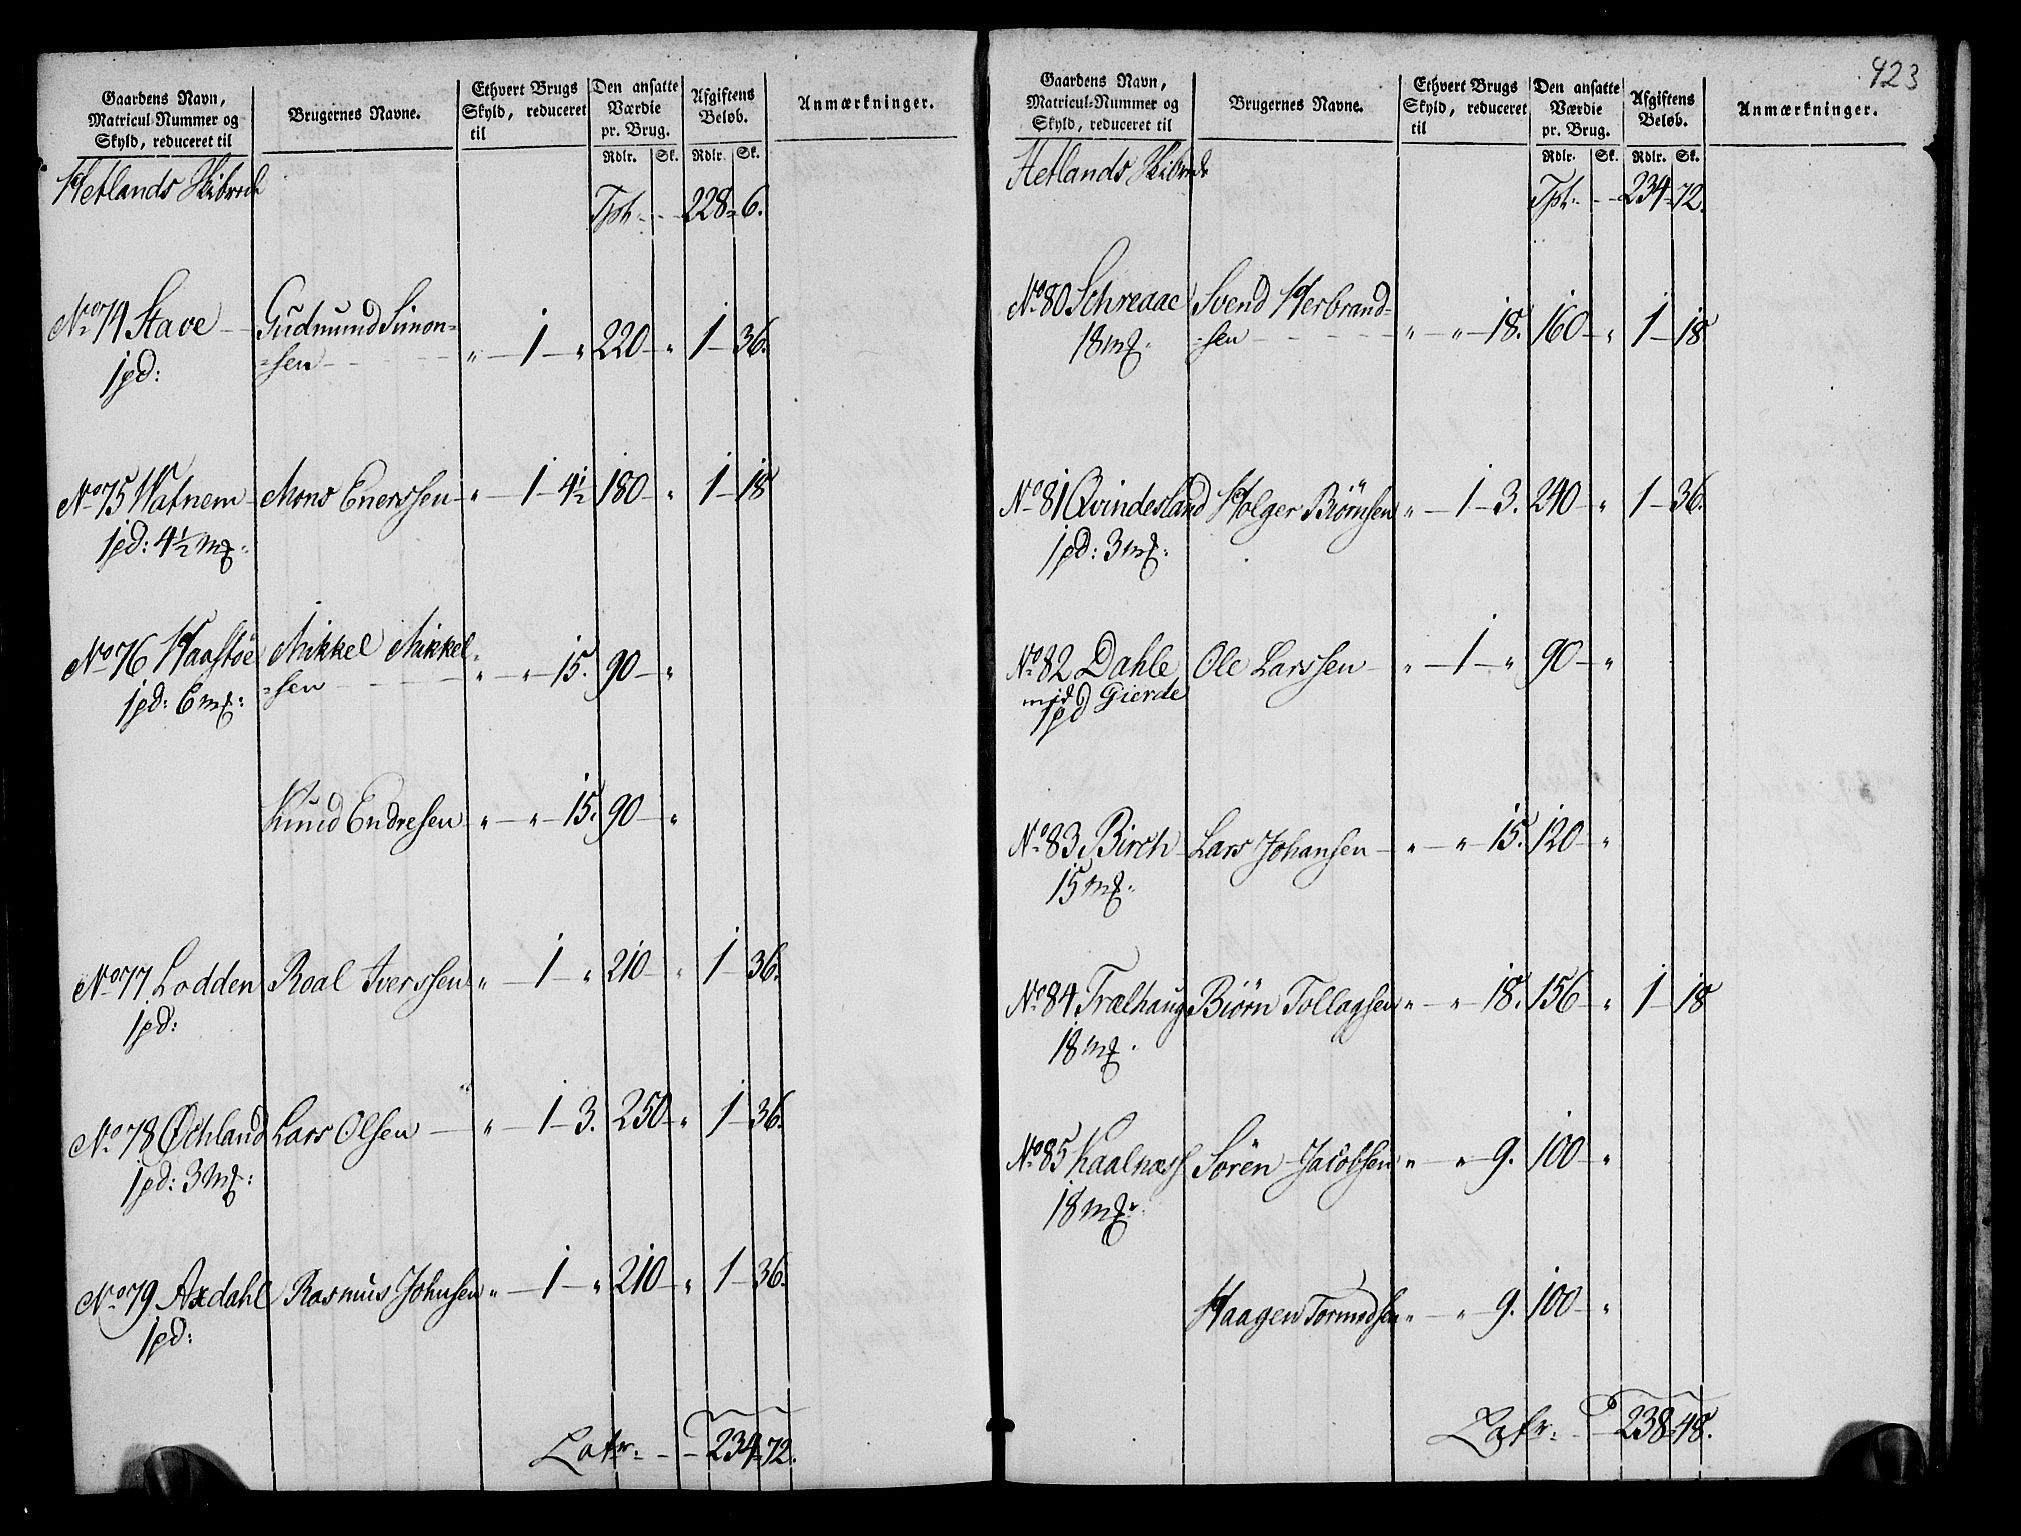 Gaardens Navn, Matricul-Nummer og Skyld, reduceret til | Brugernes Navne. | Ethvert Brugs Skyld, reduceret til | Den ansatte Værdie pr. Brug. | Afgiftens Beløb. | Anmærkninger.
Rdlr. | Sk. | Rdlr. | Sk.
Hetlands Skibrede
Tpt: - - 228 " 6.
No 74 Stave - - Gudmund Simon= " — 1 — " 220 — " 1 — 36.
1pd: =sen - - -
No 75 Watnem - Mons Enerssen - " — 1 — 4½ 180 — " 1 — 18
1pd: 4½ m§.
No 76 Haastøe Mikkel Mikkel " — " — 15. 90 — "
1pd: 6 m§: =sen
Knud Endresen " — " — 15. 90 — "
No 77 Lodden Roal Iverssen " — 1 — " 210 — " 1 — 36.
1pd:
No 78 Øchland Lars Olsen — " — 1 — 3. 250 — " 1 — 36.
1pd: 3 m§:
No 79 Axdahl Rasmus Johnsen " — 1 — " 210 — " 1 — 36.
1pd:
Latr: - - 234 " 72.
423
Gaardens Navn, Matricul-Nummer og Skyld, reduceret til | Brugernes Navne. | Ethvert Brugs Skyld, reduceret til | Den ansatte Værdie pr. Brug. | Afgiftens Beløb. | Anmærkninger.
Rdlr. | Sk. | Rdlr. | Sk.
Hetlands Skibrede
Tpt: - - 234 " 72.
No 80 Schreaae Svend Herbrand= " — " — 18. 160 — " 1 — 18
18 m§. =sen - - -
No 81 Qvindesland Holger Biørnsen " — 1 — 3. 240 — " 1 — 36.
1pd: 3 m§:
No 82 Dahle Ole Larssen — " — 1 — " 90 — "
med Gierde
1pd
No 83 Birch Lars Johansen — " — " 15. 120 — "
15 m§.
No 84 Trælhaug Biørn Tollagsen " — " 18. 156 — " 1 — 18
18 m§.
No 85 Kaalnæss Sören Jacobsen " — " 9. 100 — "
18 m§.
Haagen Tormodsen " — " 9. 100 — "
Latr: - - 238 " 48.